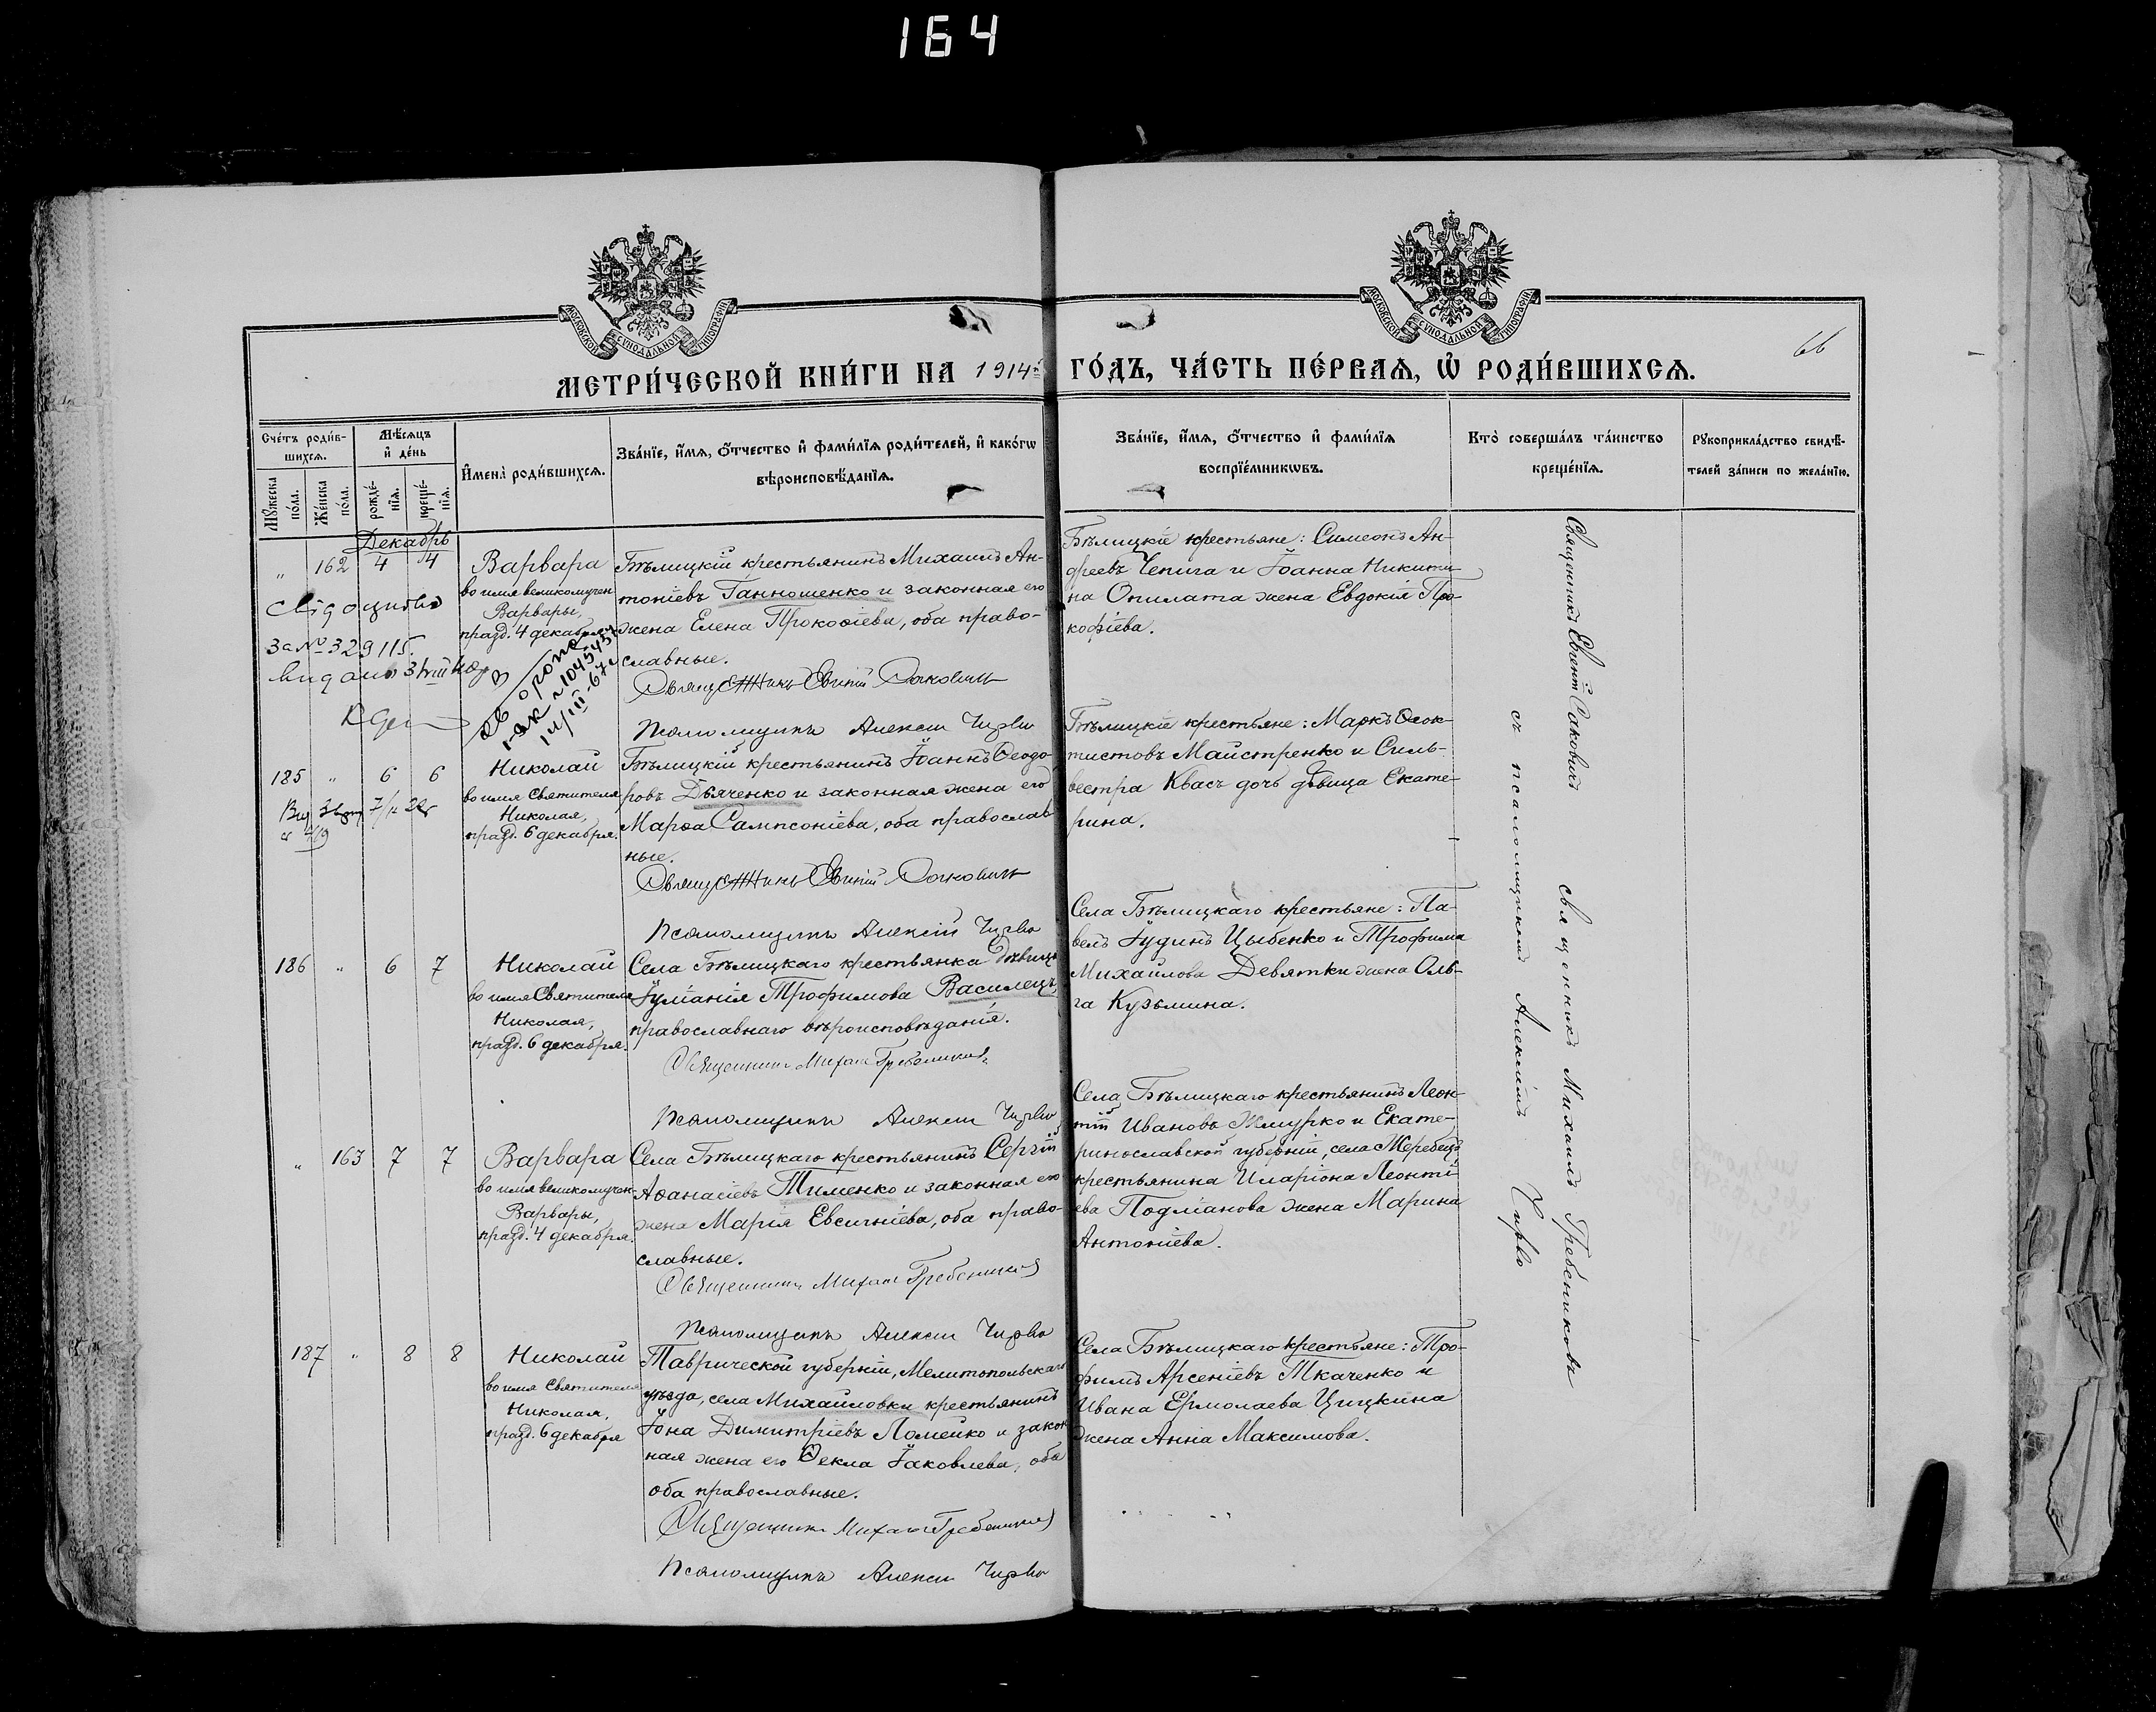 164
МОСКОВСКОЙ СѴНОДАЛЬНОЙ ТИПОГРАФІИ
МОСКОВСКОЙ СѴНОДАЛЬНОЙ ТИПОГРАФІИ
66
МЕТРИ́ЧЕСКОЙ КНИ́ГИ НА 1914й ГО́ДЪ, ЧА́СТЬ ПЕ́РВАѦ, Ѡ҆ РОДИ́ВШИХСѦ.
Сче́тъ роди́в-
шихсѧ.
Мꙋ́жеска
по́ла.
Же́нска
по́ла.
Мѣ́сѧцъ
и҆ де́нь
рожде́-
нїѧ.
креще́-
нїѧ.
И҆мена̀ роди́вшихсѧ.
Зва́нїе, и҆́мѧ, ѻ҆́тчество и҆ фами́лїѧ роди́телей, и҆ како́гѡ
вѣроисповѣ́данїѧ.
Зва́нїе, и҆́мѧ, ѻ҆́тчество и҆ фами́лїѧ
воспрїе́мникѡвъ.
Кто̀ соверша́лъ та́инство
креще́нїѧ.
Рꙋкоприкла́дство свидѣ́-
телей за́писи по жела́нїю.
Декабрь
" 162 4 4
Варвара
во имя великомучен
Варвары,
празд. 4 декабря
Бѣлицкій крестьянинъ Михаилъ Ан-
тоніевъ Ганношенко и законная его
жена Елена Прокофіева, оба право-
славные.
Священникъ Евгеній Саковичъ
Псаломщикъ Алексій Чирво
Бѣлицкіе крестьяне: Симеонъ Ан-
дреевъ Чепига и Іоанна Никити-
на Опилата жена Евдокія Про-
кофіева.
за № 329115.
185 " 6 6
Николай
во имя Святителя
Николая,
празд. 6 декабря.
Бѣлицкій крестьянинъ Іоаннъ Ѳеодо-
ровъ Дьяченко и законная жена его
Марѳа Сампсоніева, оба православ-
ные.
Священникъ Евгеній Саковичъ
Псаломщикъ Алексій Чирво
Бѣлицкіе крестьяне: Маркъ Ѳеок-
тистовъ Майстренко и Силь-
вестра Квасъ дочь дѣвица Екате-
рина.
186 " 6 7
Николай
во имя Святителя
Николая,
празд. 6 декабря.
Села Бѣлицкаго крестьянка дѣвица
Іуліанія Трофимова Василецъ,
православнаго вѣроисповѣданія.
Священникъ Михаилъ Гребениковъ
Псаломщикъ Алексій Чирво
Села Бѣлицкаго крестьяне: Па-
велъ Іудинъ Цыбенко и Трофима
Михайлова Девятки жена Оль-
га Кузьмина.
" 163 7 7
Варвара
во имя великомучен
Варвары,
празд. 4 декабря.
Села Бѣлицкаго крестьянинъ Сергѣй
Аѳанасіевъ Тименко и законная его
жена Марія Евсигніева, оба право-
славные.
Священникъ Михаилъ Гребениковъ
Псаломщикъ Алексій Чирво
Села Бѣлицкаго крестьянинъ Леон-
тій Ивановъ Жмурко и Екате-
ринославской губерніи, села Жеребецъ
крестьянина Иларіона Леонті-
ева Подліанова жена Марина
Антоніева.
187 " 8 8
Николай
во имя Святителя
Николая,
празд. 6 декабря
Таврической губерніи, Мелитопольскаго
уѣзда, села Михайловки крестьянинъ
Іона Димитріевъ Ломейко и закон
ная жена его Ѳекла Іаковлева, оба
оба православные.
Священникъ Михаилъ Гребениковъ
Псаломщикъ Алексій Чирво
Села Бѣлицкаго крестьяне: Тро-
фимъ Арсеніевъ Ткаченко и
Ивана Ермолаева Цицкина
жена Анна Максимова.
Священникъ Евгеній Саковичъ
священникъ Михаилъ Гребениковъ
съ псаломщикомъ Алексіемъ Чирво